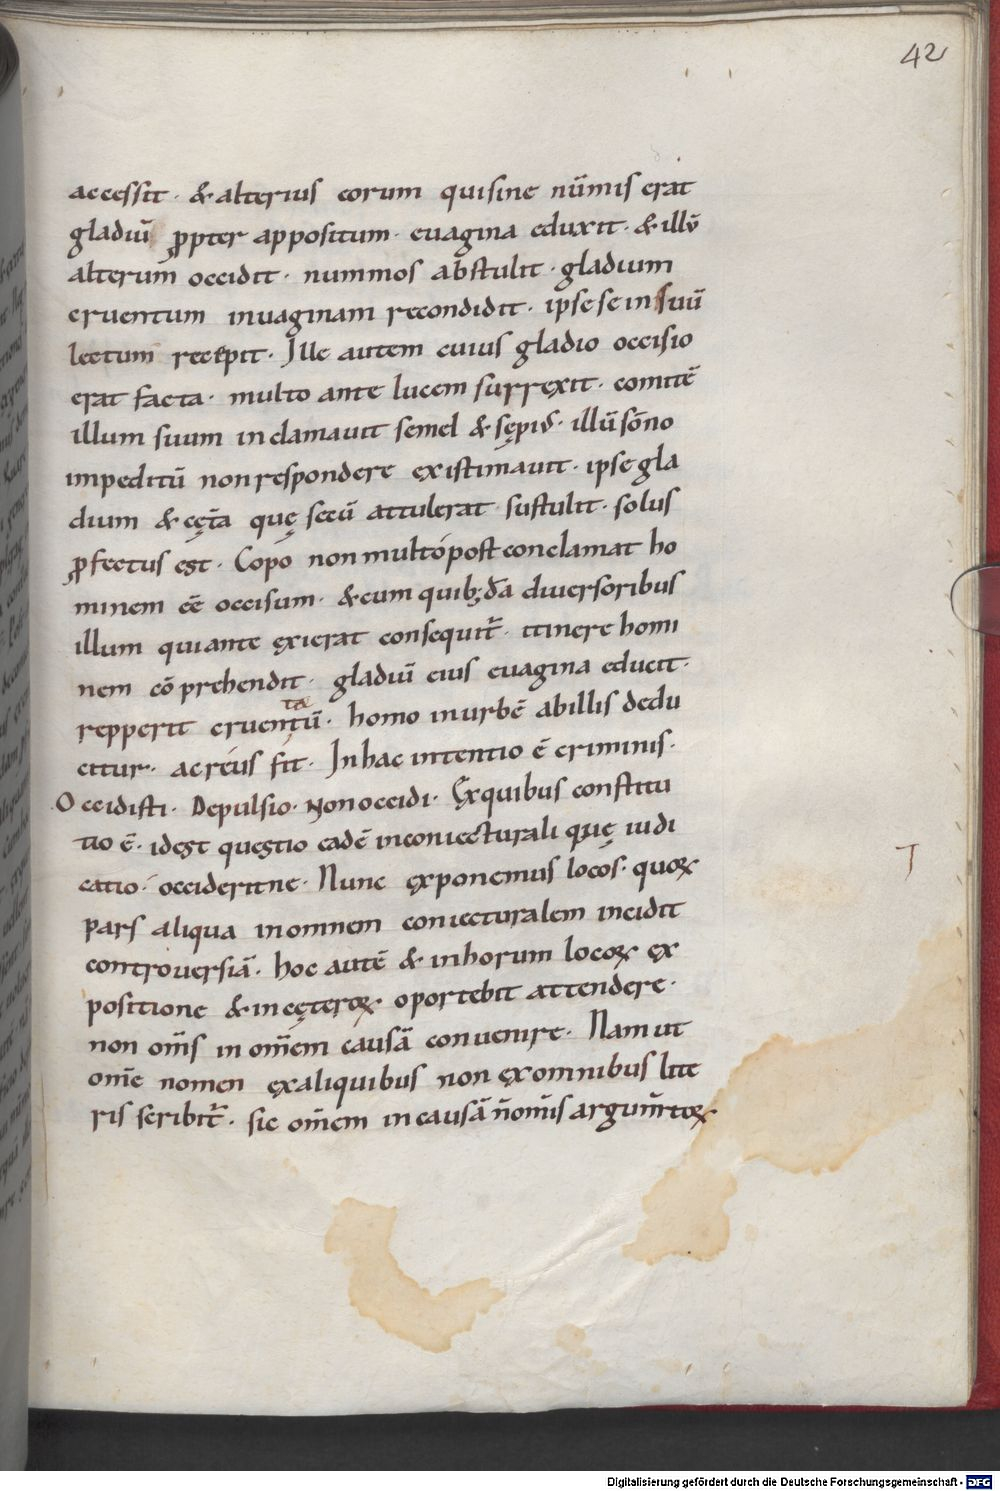 42
accessit · & alterius eorum quisine nūmis erat
gladiū ꝓpter appositum · euagina eduxit · & illū
alterum occidit · nummos abstulit · gladium
cruentum inuaginam recondidit · ipse se in suū
lectum recepit · Ille autem cuius gladio occisio
erat facta · multo ante lucem surrexit · comitē
illum suum inclamauit semel & sępius · illū sōno
impeditū non respondere existimauit · ipse gla
dium & cęta quę secū attulerat sustulit · solus
ꝓfectus est · Copo non multopost conclamat ho
minem eē occisum · & cum quibꝫdā diuersoribus
illum qui ante exierat consequit̄ · itinere homi
nem cō prehendit · gladiū eius euagina educit ·
repperit cruentū · homo inurbē abillis dedu
citur · ac reus fit · In hac intentio ē criminis ·
Occidisti · Depulsio · Non occidi · Exquibus constitu
tio ē · idest questio eadē inconiecturali quę iudi
catio · occideritne · Nunc exponemus locos · quoꝝ
pars aliqua inomnem coniecturalem incidit
controuersiā · hoc autē & inhorum locoꝝ ex
positione & incęteroꝝ oportebit attendere ·
non om̄s in om̄em causā conuenire · Nam ut
om̄e nomen exaliquibus non exomnibus litte
ris scribit̄ · sic om̄em in causā n̄ om̄is argum̄toꝝ
T
Digitalisierung gefördert durch die Deutsche Forschungsgemeinschaft - DFG